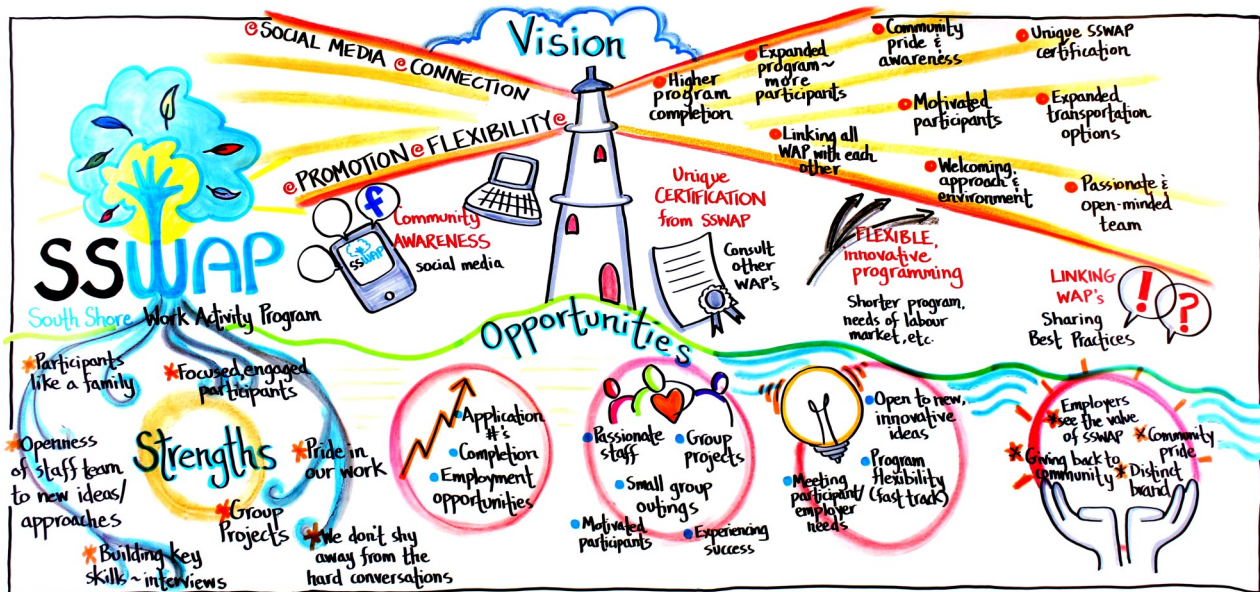 Vision
SOCIAL MEDIA
CONNECTION
PROMOTION
FLEXIBILITY
Higher
program
completion
Expanded
program~
more
participants
Community
pride &
awareness
Unique SSWAP
certification
Linking all
WAP with each
other
Motivated
participants
Expanded
transportation
options
Welcoming
approach &
environment
Passionate &
open-minded
team
SSWAP
South Shore Work Activity Program
f
SSWAP
Community
AWARENESS
social media
Unique
CERTIFICATION
from SSWAP
Consult
other
WAP's
FLEXIBLE,
innovative
programming
Shorter program,
needs of labour
market, etc.
LINKING
WAP's
Sharing
Best Practices
!
?
Opportunities
Strengths
Participants
like a family
Focused, engaged
participants
Openness
of staff team
to new ideas/
approaches
Pride in
our work
Group
Projects
Building key
skills ~ interviews
We don't shy
away from the
hard conversations
Application
#'s
Completion
Employment
opportunities
Passionate
staff
Group
projects
Small group
outings
Motivated
participants
Experiencing
success
Open to new,
innovative
ideas
Program
flexibility
(fast track)
Meeting
participant/
employer
needs
Employers
see the value
of SSWAP
Community
pride
Giving back to
community
Distinct
brand